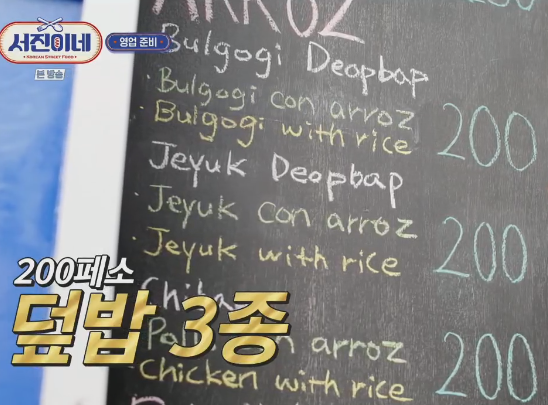 서진이네
KOREAN STREET FOOD
본 방송
영업 준비
ARROZ
Bulgogi Deopbap
· Bulgogi con arroz
· Bulgogi with rice
200
Jeyuk Deopbap
· Jeyuk con arroz
· Jeyuk with rice
200
arroz
· Chicken with rice
200
200페소
덮밥 3종